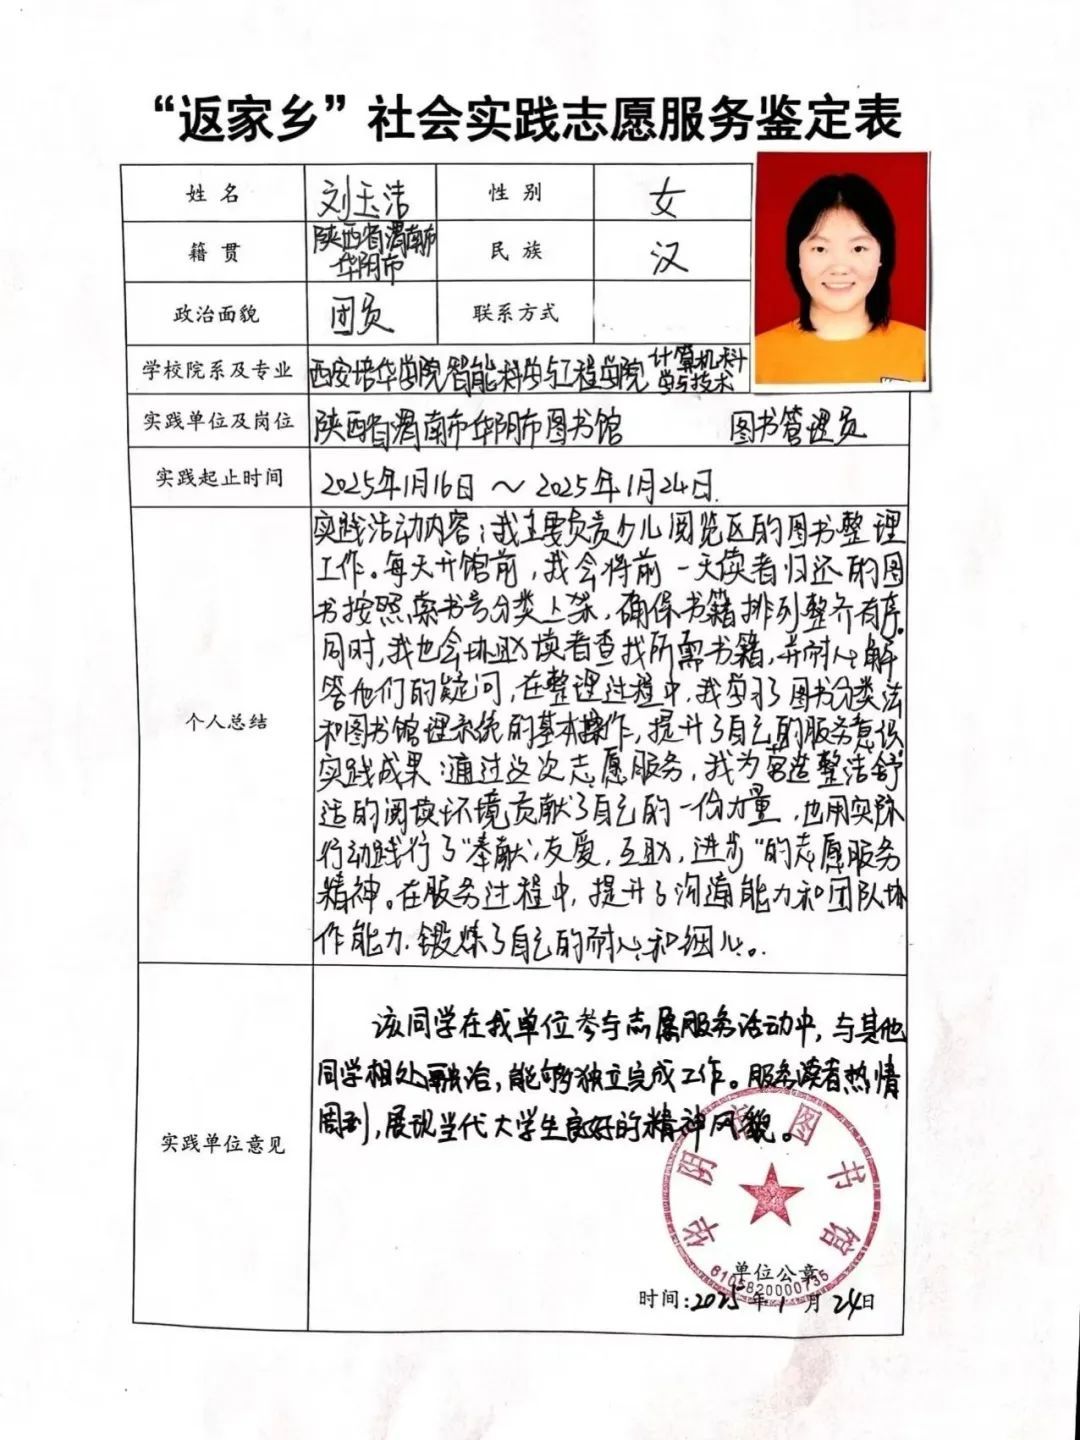 “返家乡”社会实践志愿服务鉴定表
姓 名 刘玉洁 性 别 女
籍 贯 陕西省渭南市华阴市 民 族 汉
政治面貌 团员 联系方式
学校院系及专业 西安培华学院智能科学与工程学院 计算机科学与技术
实践单位及岗位 陕西省渭南市华阴市图书馆 图书管理员
实践起止时间 2025年1月16日 ～ 2025年1月24日.
个人总结
实践活动内容：我主要负责少儿阅览区的图书整理
工作。每天开馆前，我会将前一天读者归还的图
书按照索书号分类上架，确保书籍排列整齐有序.
同时，我也会协助读者查找所需书籍，并耐心解
答他们的疑问，在整理过程中，我学习了图书分类法
和图书馆理系统的基本操作，提升了自己的服务意识
实践成果：通过这次志愿服务，我为营造整洁舒
适的阅读环境贡献了自己的一份力量，也用实际
行动践行了“奉献，友爱，互助，进步”的志愿服务
精神。在服务过程中，提升了沟通能力和团队协
作能力.锻炼了自己的耐心和细心。
实践单位意见
该同学在我单位参与志愿服务活动中，与其他
同学相处融洽，能够独立完成工作。服务读者热情
周到，展现当代大学生良好的精神风貌。
华阴市图书馆
6105820000735
单位公章
时间:2025年1月24日